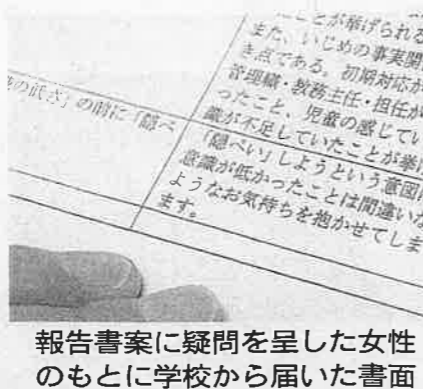 ことが挙げられる
また、いじめの事実関
き点である。初期対応が
管理職・教務主任・担任が
ったこと、児童の感じてい
識が不足していたことが挙げ
の低さ」の前に「隠ぺ
「隠ぺい」しようという意図に
意識が低かったことは間違いな
ようなお気持ちを抱かせてしま
ます。
報告書案に疑問を呈した女性
のもとに学校から届いた書面